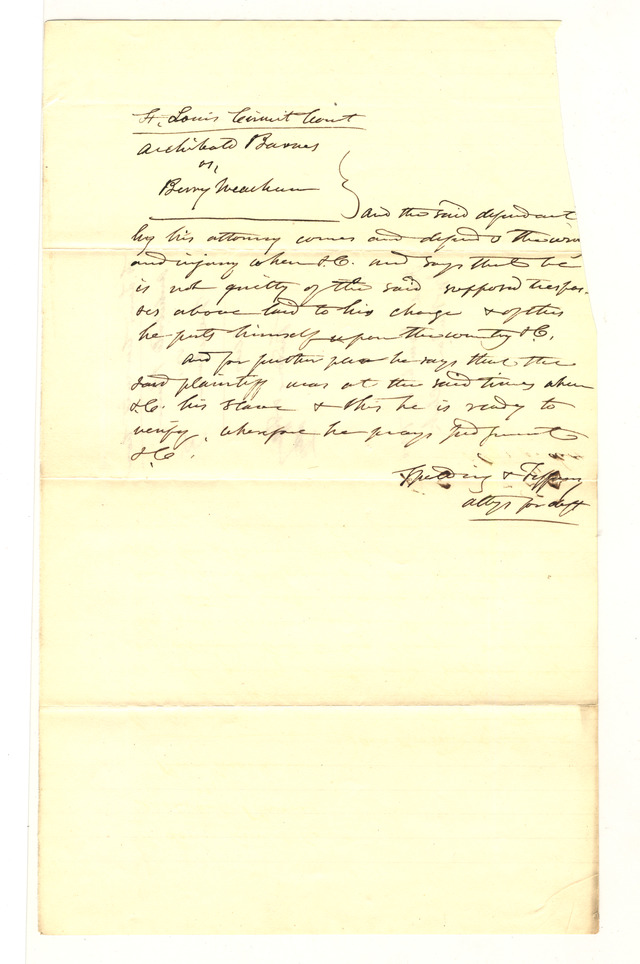 St. Louis Circuit Court
Archibald Barnes
vs,
Berry Meachum
And the said defendant
by his attorney comes and defends the
and injury when &C. and says that he
is not guilty of the said supposed trespas-
ses above laid to his charge & of this
he puts himself upon the country &C.
And for further plea he says that the
said plaintiff was at the said times when
&C. his slave & this he is ready to
verify, wherefore he prays judgment
&C.
Spalding & Tiffany
attys for deft